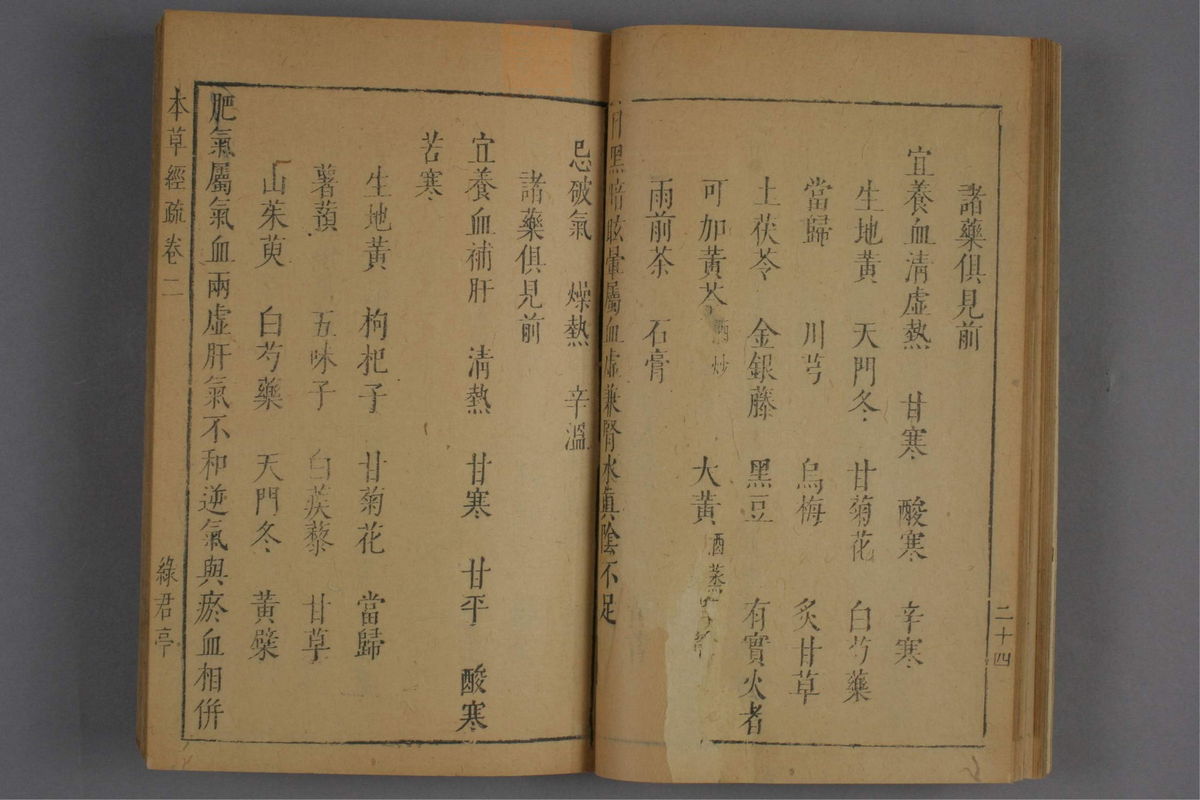 諸藥俱見前
宜養血清虛熱 甘寒 酸寒 辛寒
生地黃 天門冬 甘菊花 白芍藥
當歸 川芎 烏梅 炙甘草
土茯苓 金銀藤 黑豆 有實火者
可加黃芩酒炒 大黃酒蒸
雨前茶 石膏
目黑暗眩暈屬血虛兼腎水真陰不足
忌破氣 燥熱 辛溫
諸藥俱見前
宜養血補肝 清熱 甘寒 甘平 酸寒
苦寒
生地黃 枸杞子 甘菊花 當歸
薯蕷 五味子 白蒺藜 甘草
山茱萸 白芍藥 天門冬 黃檗
肥氣屬氣血兩虛肝氣不和逆氣與瘀血相併
本草經疏卷二
綠君亭
二十四